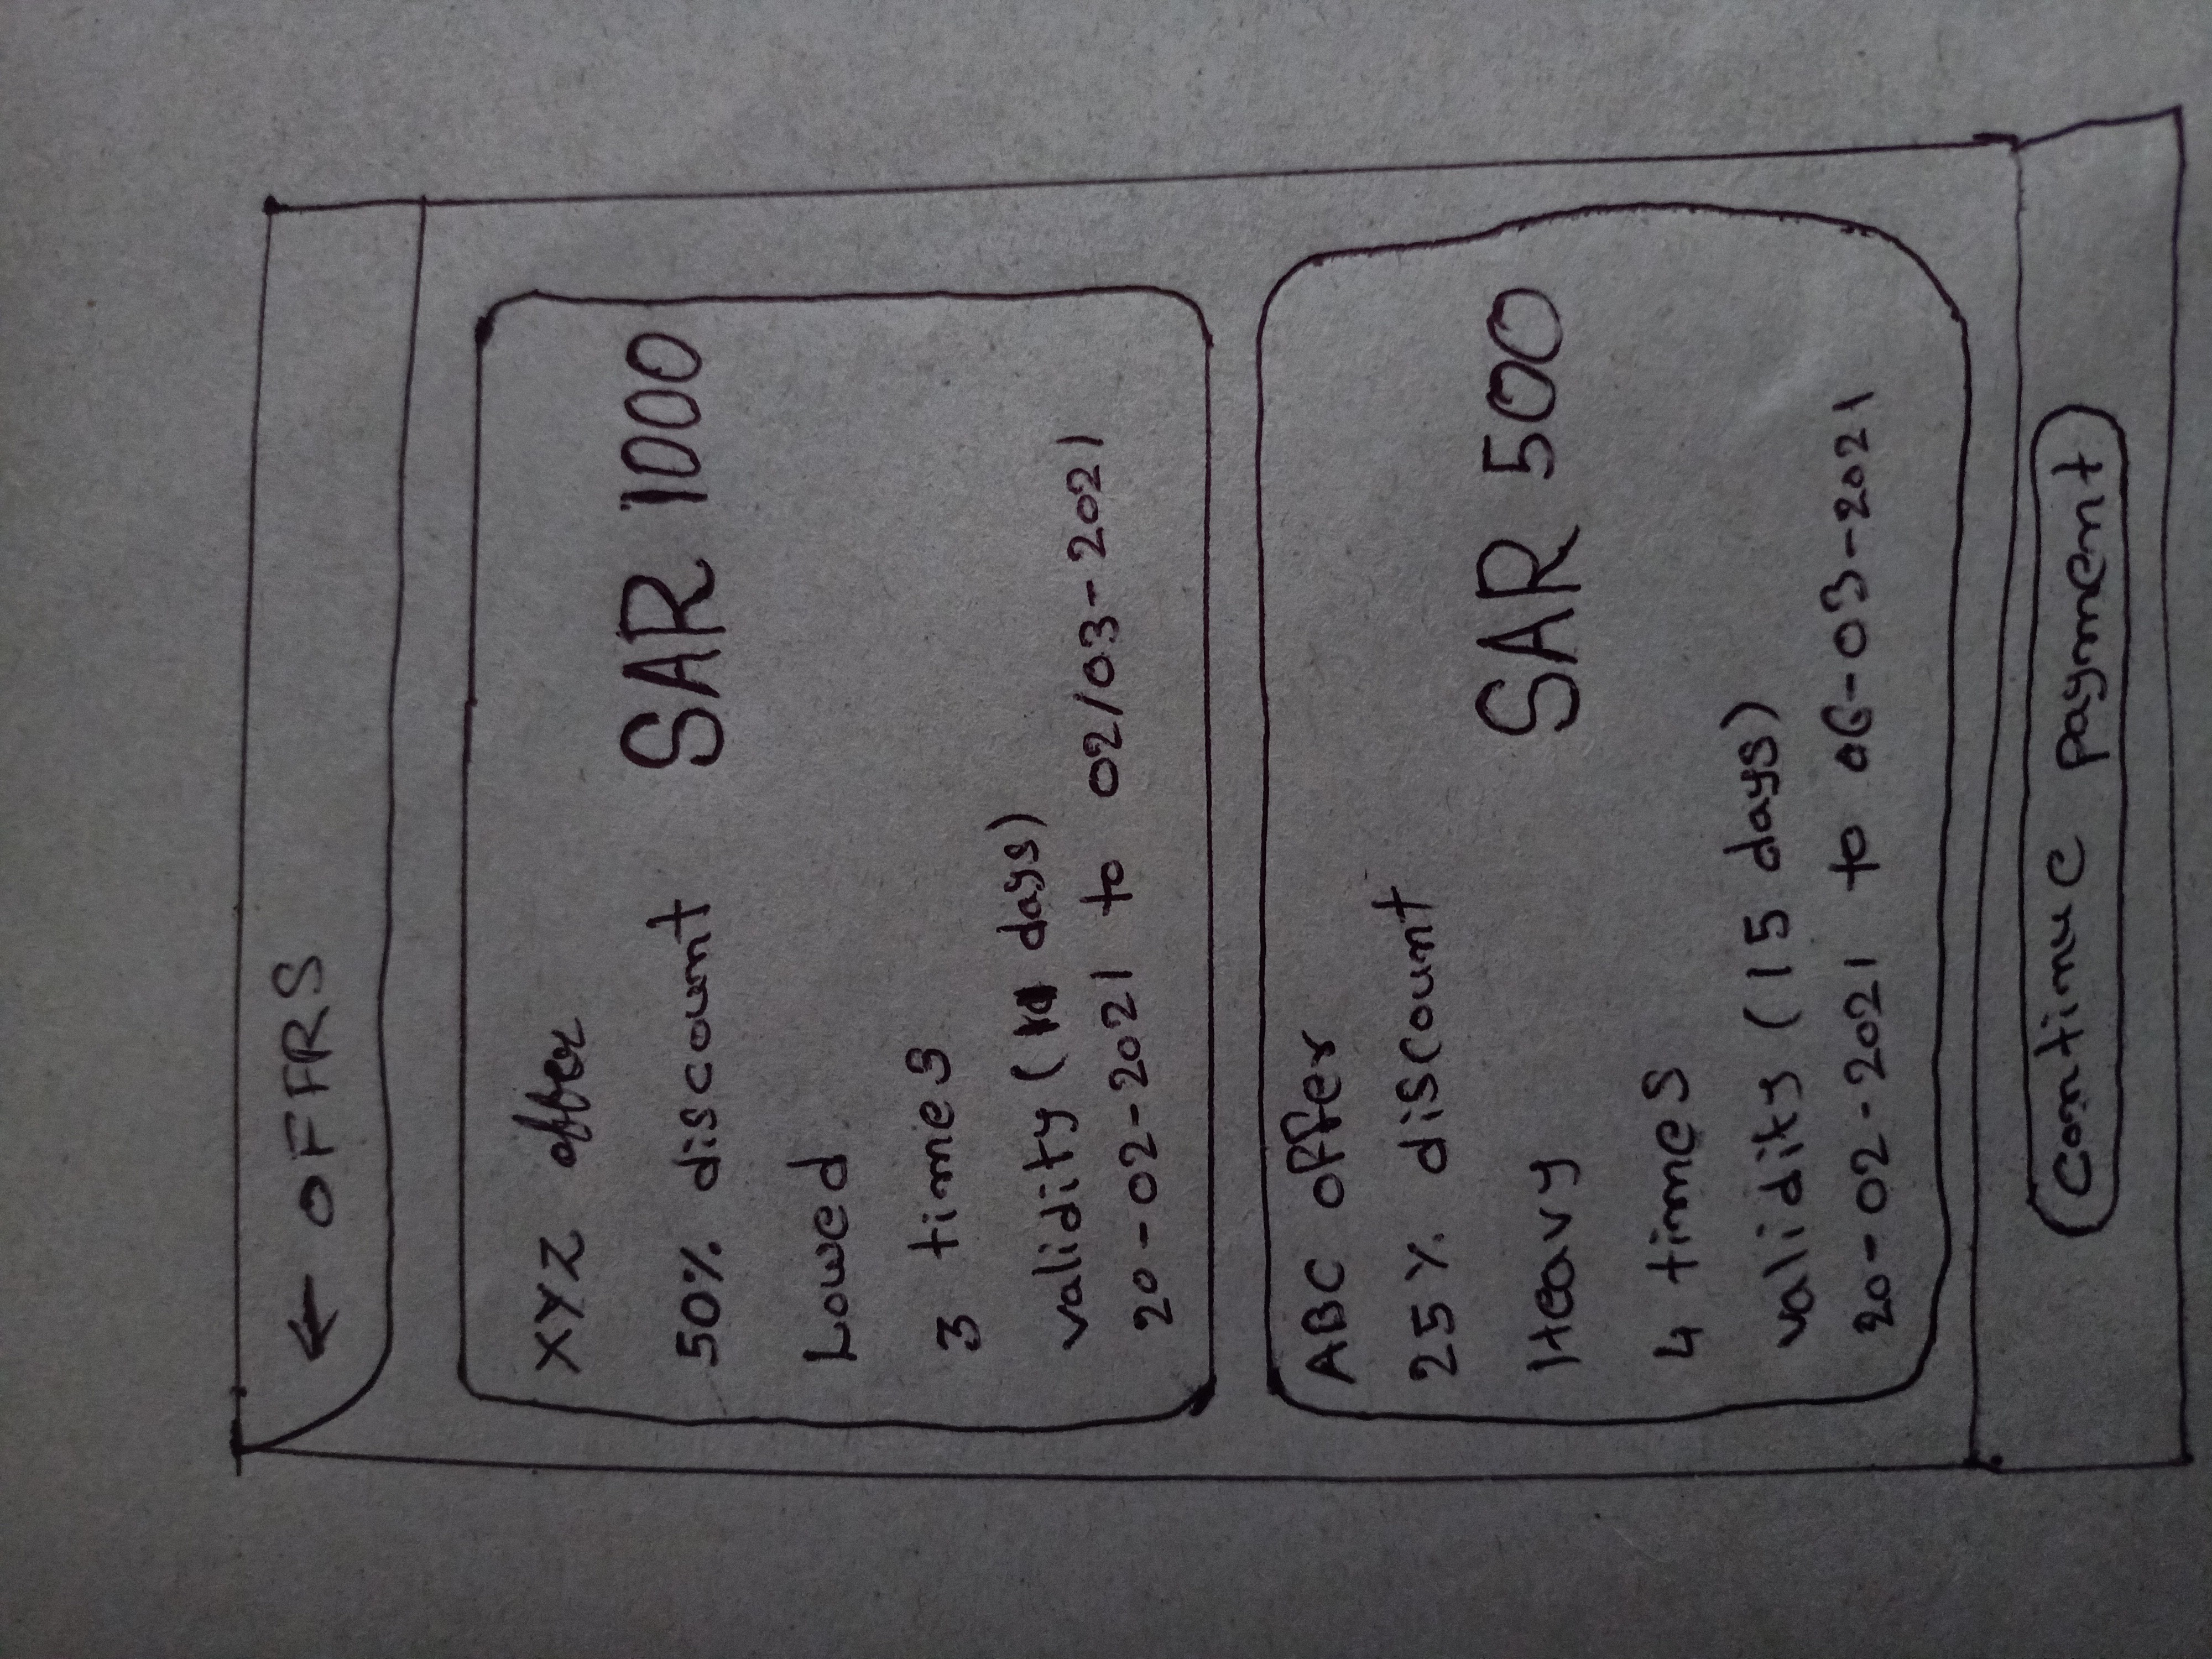 ← OFFRS
XYZ offer
50% discount
SAR 1000
Lowed
3 times
validity ( days)
20-02-2021 to 02/03-2021
ABC offer
25% discount
SAR 500
Heavy
4 times
validity (15 days)
20-02-2021 to 06-03-2021
Continue payment